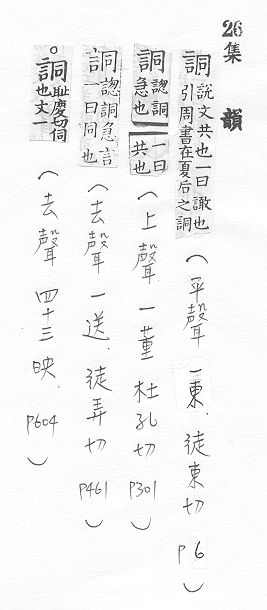 26 集 韻
詷 說文共也一曰譀也引周書在夏后之詷 (平聲 一東. 徒東切 P6)
詷 諰詷急也 一曰共也 (上聲 一董 杜孔切 P301)
詷 諰詷急言一曰同也 (去聲 一送. 徒弄切 P461)
。詷 恥慶切伺也文一 (去聲 四十三 映. P604)